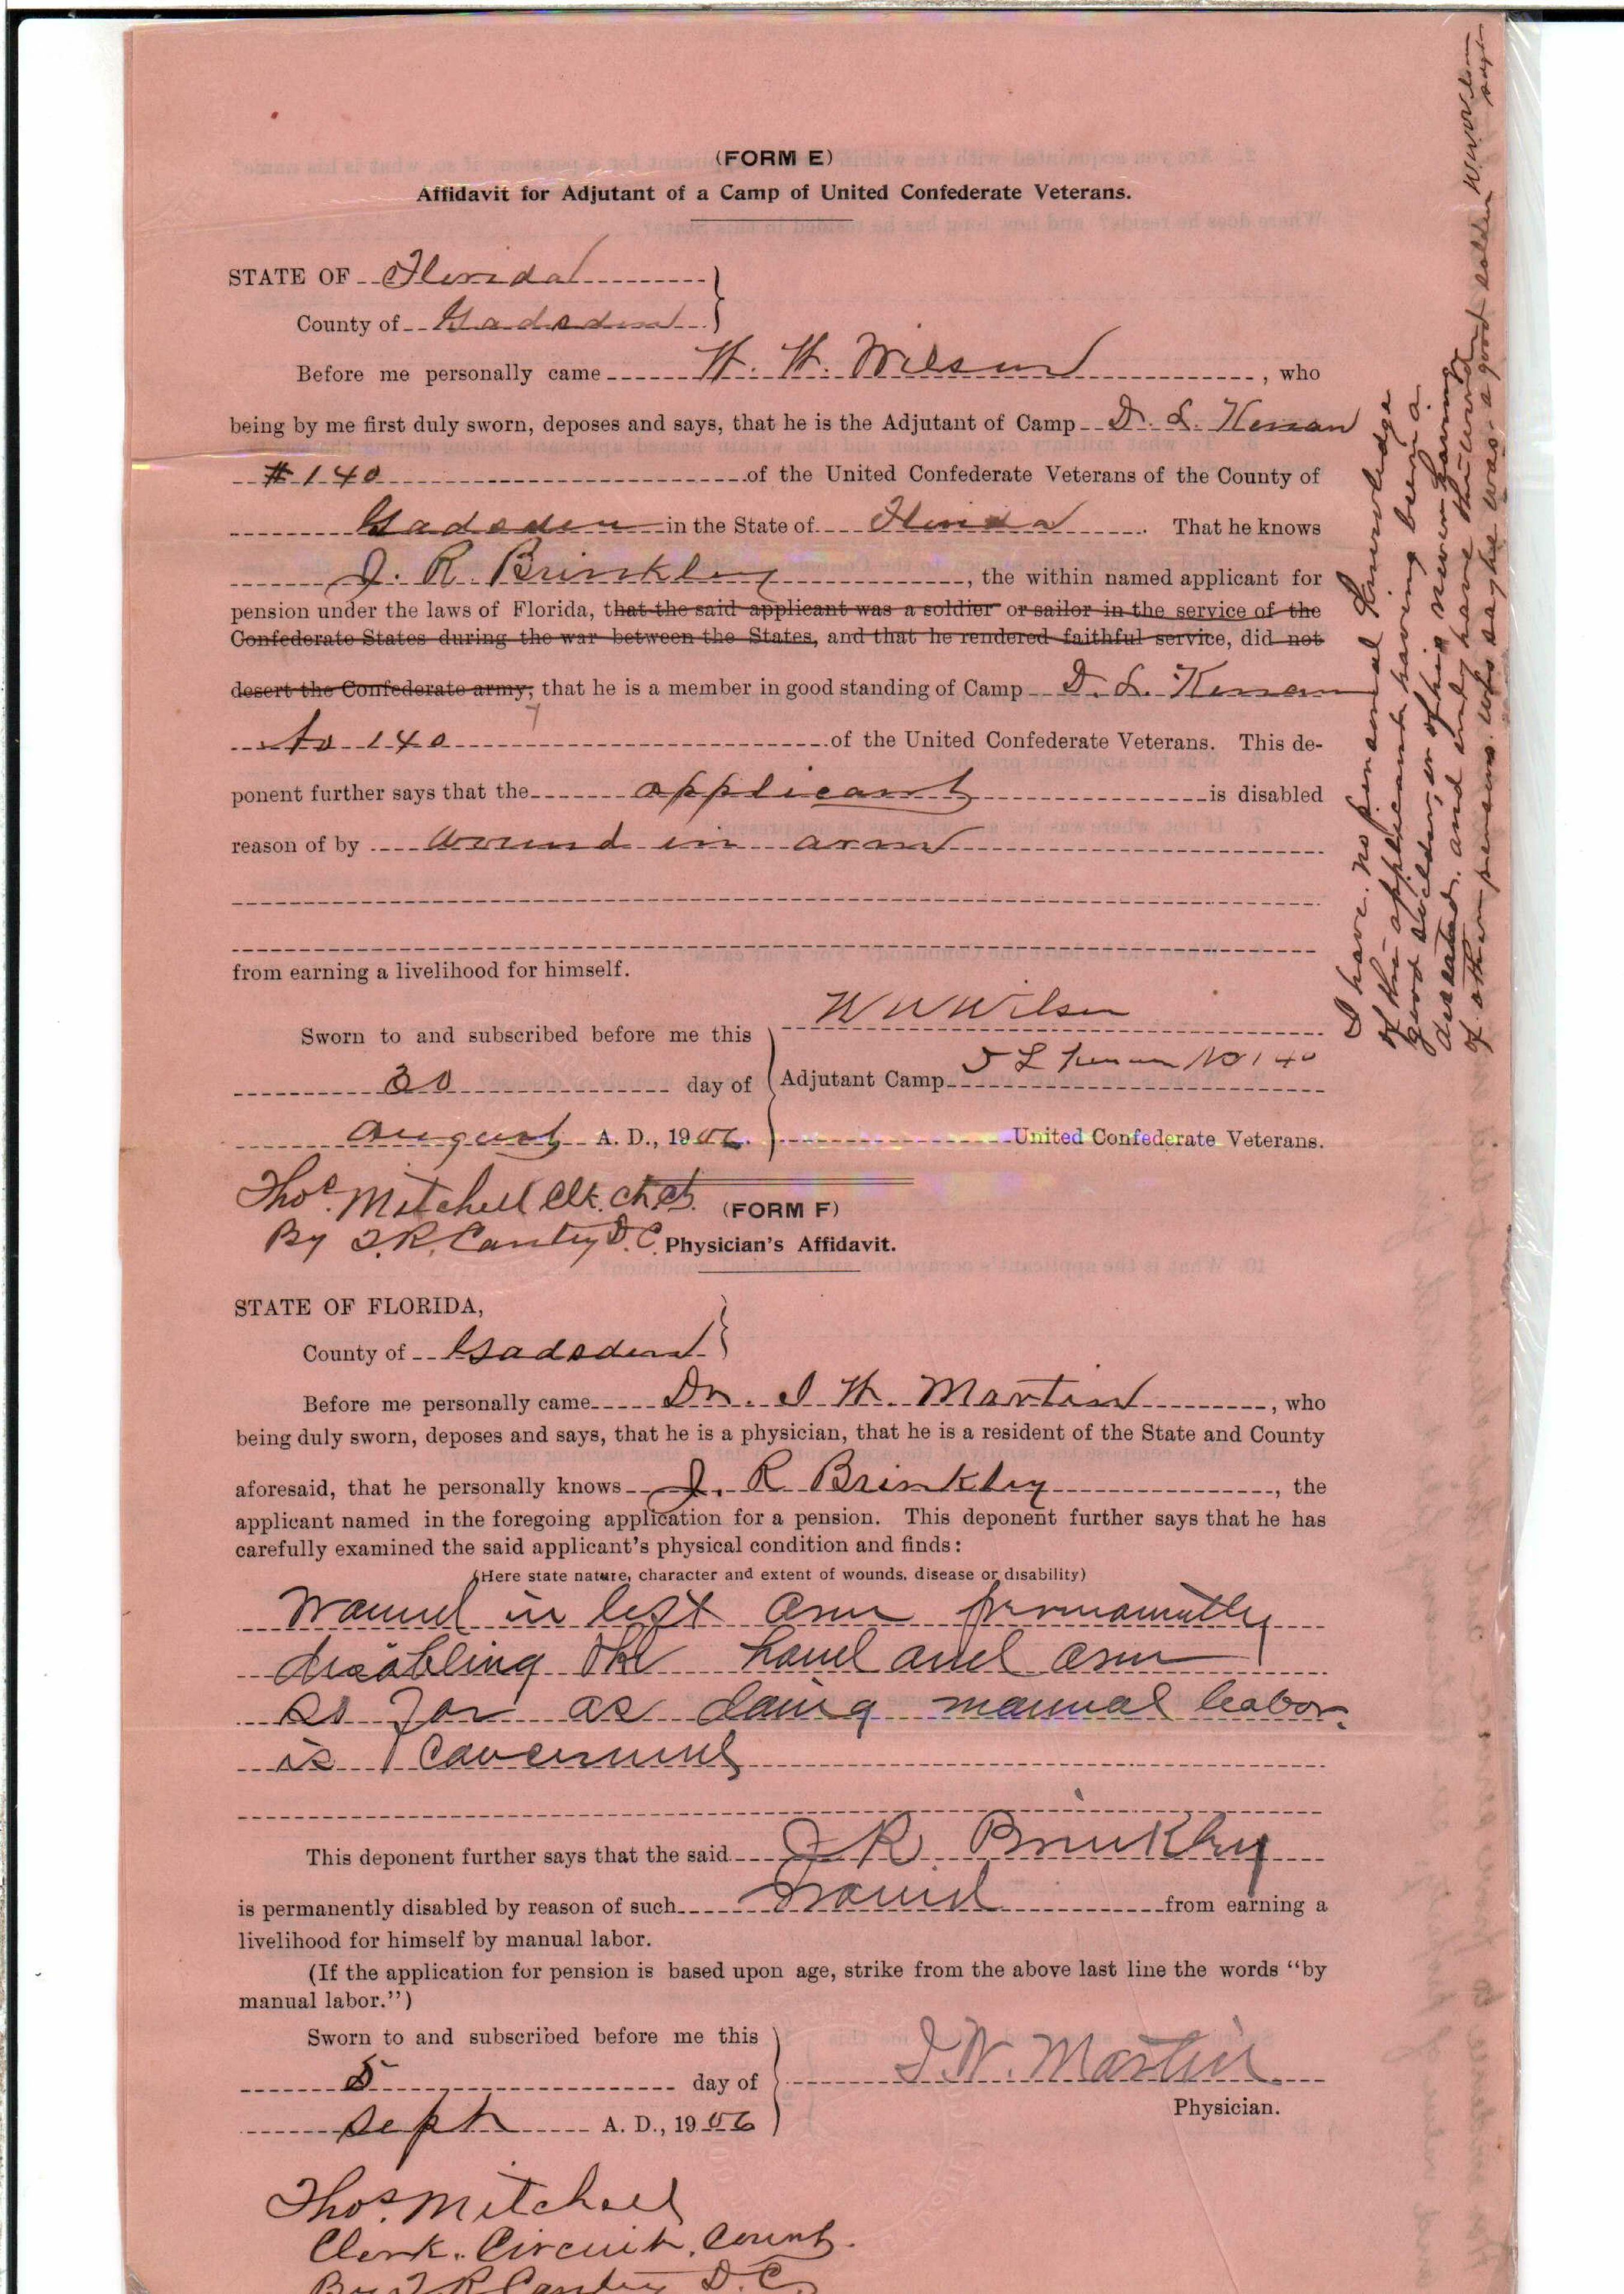 (FORM E)
Affidavit for Adjutant of a Camp of United Confederate Veterans.
STATE OF Florida
County of Gadsden
Before me personally came W. W. Wilson, who
being by me first duly sworn, deposes and says, that he is the Adjutant of Camp D. L. Kenan
# 140 of the United Confederate Veterans of the County of
Gadsden in the State of Florida. That he knows
J. R. Brinkley, the within named applicant for
pension under the laws of Florida, that the said applicant was a soldier or sailor in the service of the
Confederate States during the war between the States, and that he rendered faithful service, did not
desert the Confederate army; that he is a member in good standing of Camp D. L. Kenan
No 140 of the United Confederate Veterans. This de-
ponent further says that the applicant is disabled
reason of by wound in arm
from earning a livelihood for himself.
Sworn to and subscribed before me this
30 day of
August A. D., 1906.
W W Wilson
Adjutant Camp D L Kenan No 140
United Confederate Veterans.
Thos. Mitchell Clk. Ct. Ct.
By T. R. Cantey D. C.
I have no personal knowledge
of this applicant having been a
good soldier, or of his never having
deserted, and only have the word
of other persons who say he was a good soldier W. W. Wilson
(FORM F)
Physician's Affidavit.
STATE OF FLORIDA,
County of Gadsden
Before me personally came Dr. J W. Martin, who
being duly sworn, deposes and says, that he is a physician, that he is a resident of the State and County
aforesaid, that he personally knows J. R Brinkley, the
applicant named in the foregoing application for a pension. This deponent further says that he has
carefully examined the said applicant's physical condition and finds:
(Here state nature, character and extent of wounds, disease or disability)
Wound in left arm permanently
disabling the hand and arm
so far as doing manual labor.
is concerned
This deponent further says that the said J R. Brinkley
is permanently disabled by reason of such wound from earning a
livelihood for himself by manual labor.
(If the application for pension is based upon age, strike from the above last line the words "by
manual labor.")
Sworn to and subscribed before me this
5 day of
Sept A. D., 1906
J. W. Martin.
Physician.
Thos. Mitchell
Clerk. Circuit. Court.
By T R Cantey D. C.